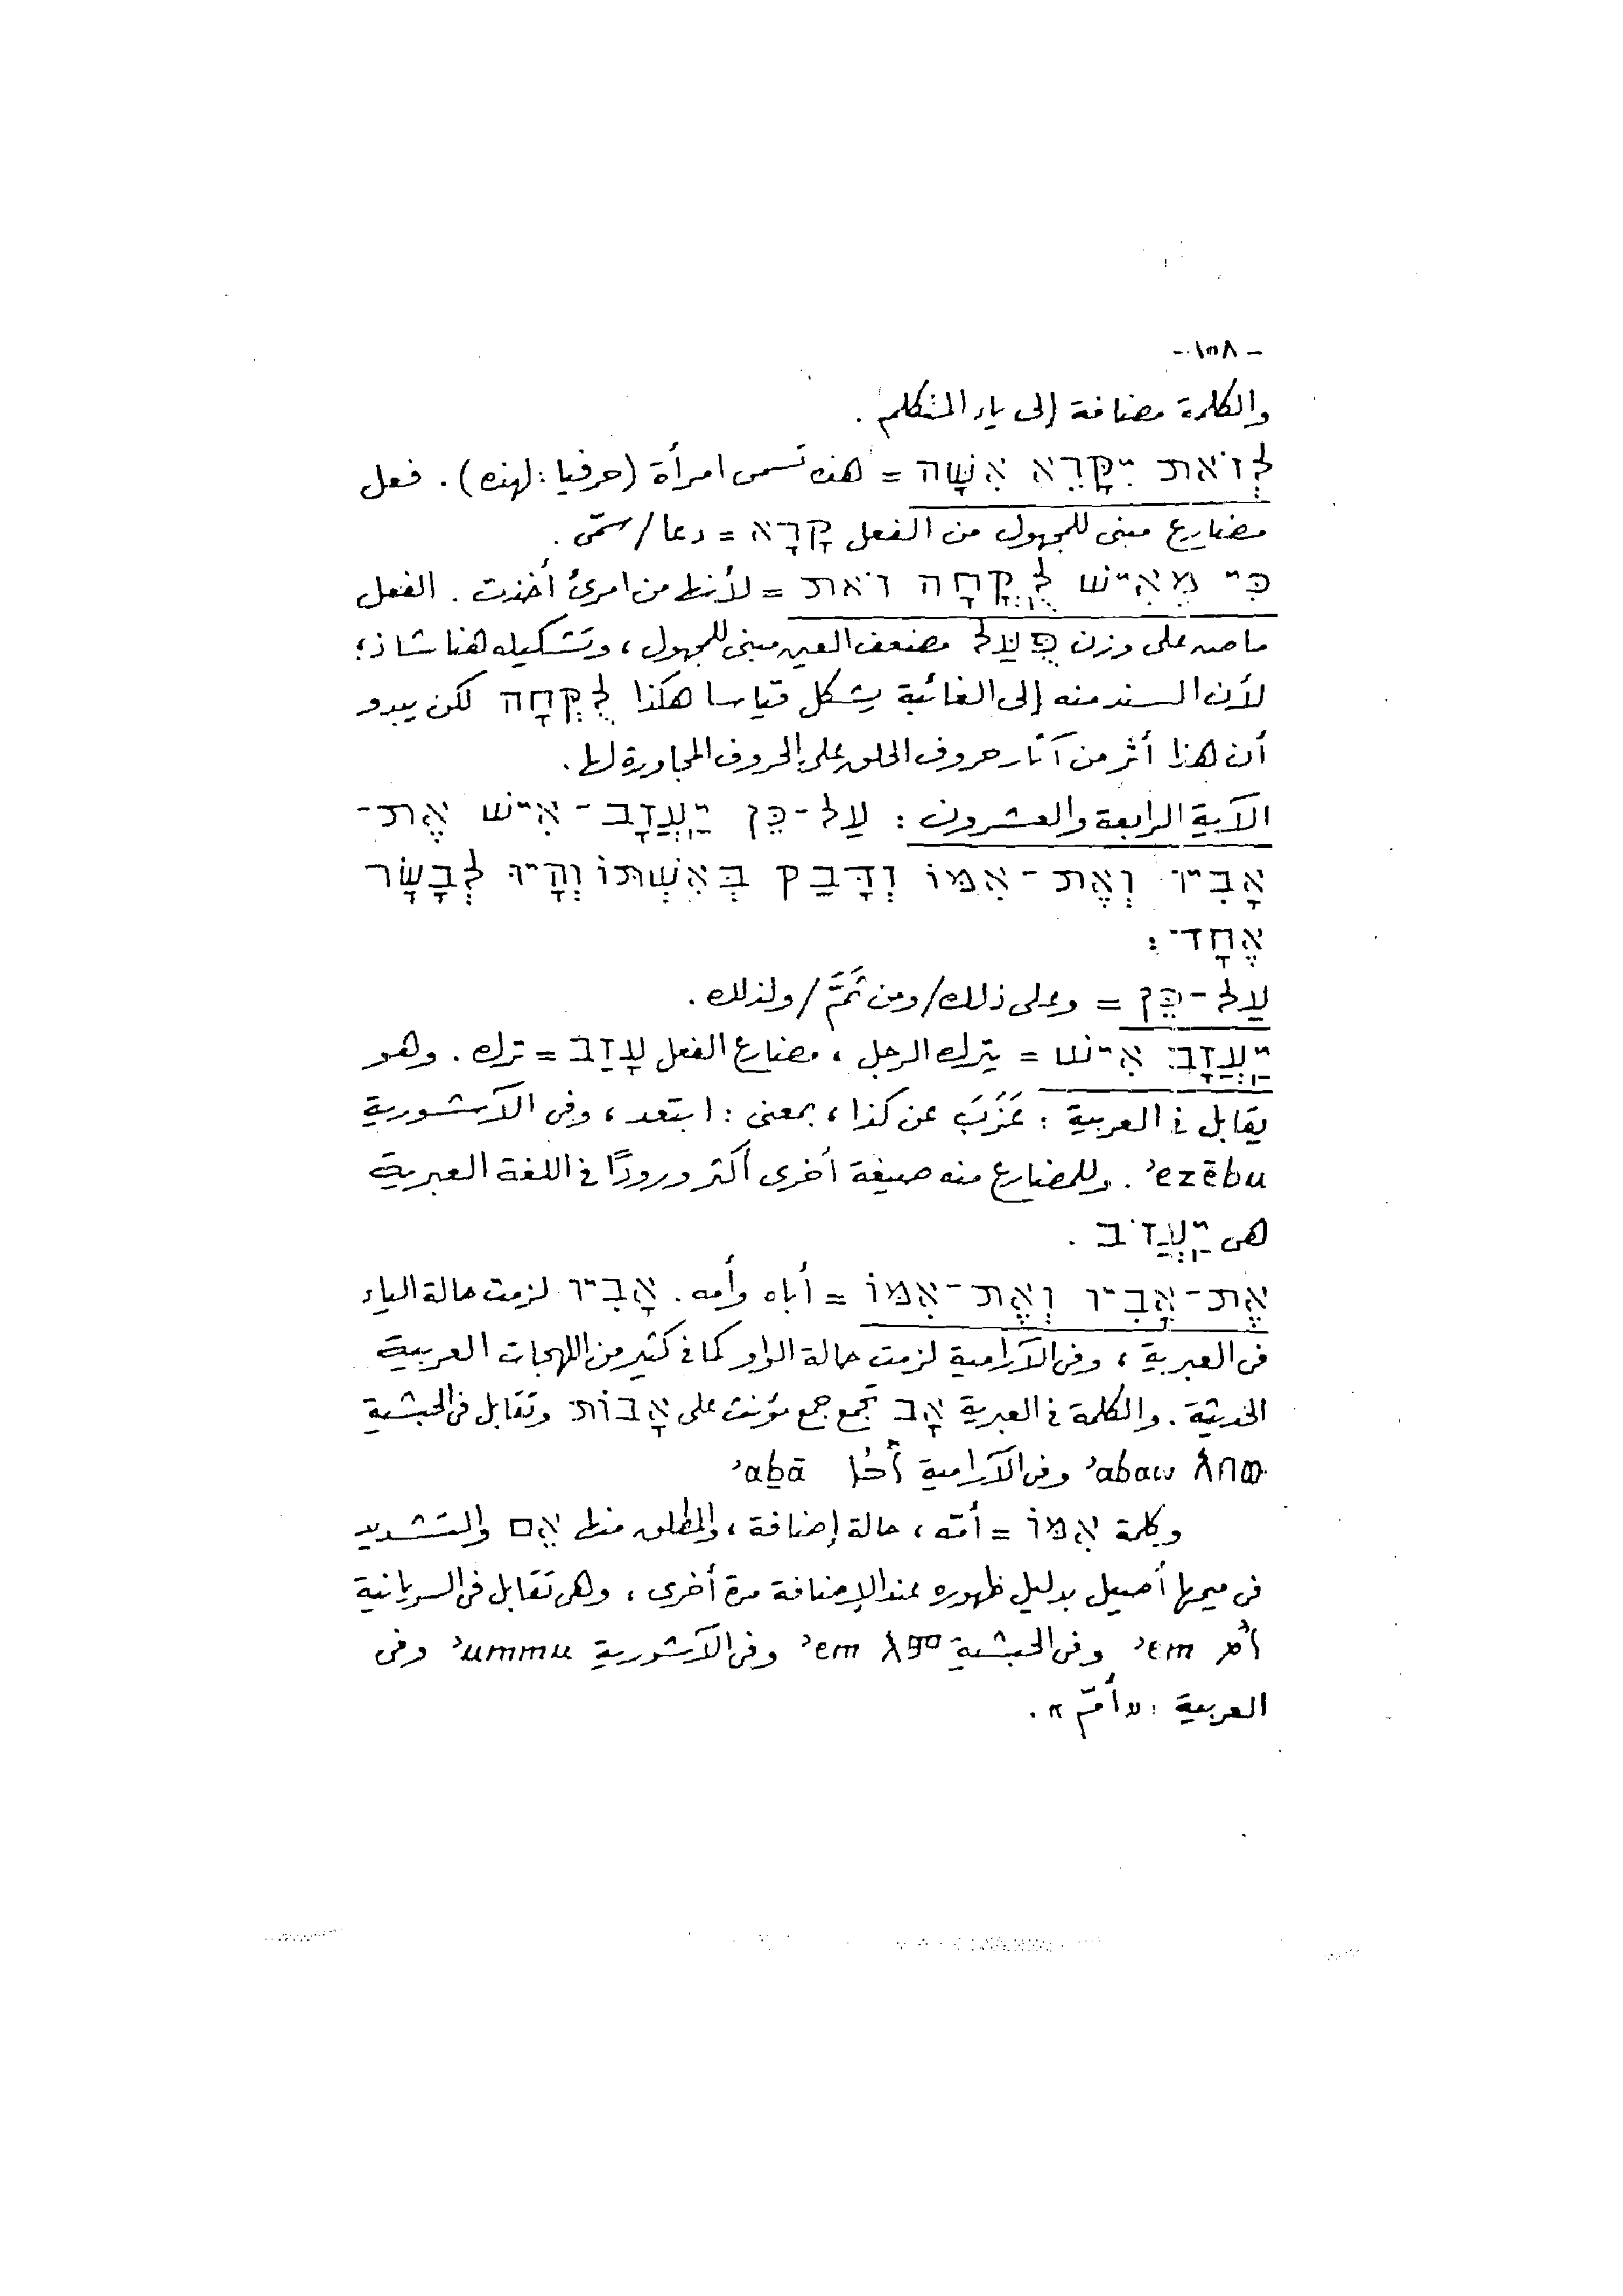 - ١٥٨ -
والكلمة مضافة إلى ياء المتكلم .
לְזֹאת יִקָּרֵא אִשָּׁה = هذه تسمى امرأة (حرفيا : لهذه) . فعل
مضارع مبنى للمجهول من الفعل קָרָא = دعا / سمّى .
כִּי מֵאִישׁ לֻֽקֳחָה זֹאת = لأنها من امرئ أخذت . الفعل
ماض على وزن פֻּעַּל مضعف العين مبنى للمجهول ، وتشكيله هنا شاذ ؛
لأن المسند منه إلى الغائبة يشكل قياسا هكذا לֻקְחָה لكن يبدو
أن هذا أثر من آثار حروف الحلق على الحروف المجاورة لها .
الآية الرابعة والعشرون : עַל-כֵּן יַֽעֲזָב-אִישׁ אֶת-
אָבִיו וְאֶת-אִמּוֹ וְדָבַק בְּאִשְׁתּוֹ וְהָיוּ לְבָשָׂר
אֶחָד :
עַל-כֵּן = وعلى ذلك / ومن ثَمَّ / ولذلك .
יַֽעֲזָב אִישׁ = يترك الرجل ، مضارع الفعل עָזַב = ترك . وهو
يقابل فى العربية : عَزَبَ عن كذا ، بمعنى : ابتعد ، وفى الآشورية
ʾezēbu . وللمضارع منه صيغة أخرى أكثر ورودًا فى اللغة العبرية
هى יַֽעֲזֹב .
אֶת-אָבִיו וְאֶת-אִמּוֹ = أباه وأمه . אָבִיו لزمت حالة الياء
فى العبرية ، وفى الآرامية لزمت حالة الواو كما فى كثير من اللهجات العربية
الحديثة . والكلمة فى العبرية אָב تجمع جمع مؤنث على אָבוֹת وتقابل فى الحبشية
አበው ʾabaw وفى الآرامية ܐܰܒܳܐ ʾaḇā
وكلمة אִמּוֹ = أمّه ، حالة إضافة ، والمطلق منها אֵם والتشديد
فى ميمها أصيل بدليل ظهوره عند الإضافة مرة أخرى ، وهى تقابل فى السريانية
ܐܶܡ ʾem وفى الحبشية እም ʾem وفى الآشورية ʾummu وفى
العربية : « أمّ » .